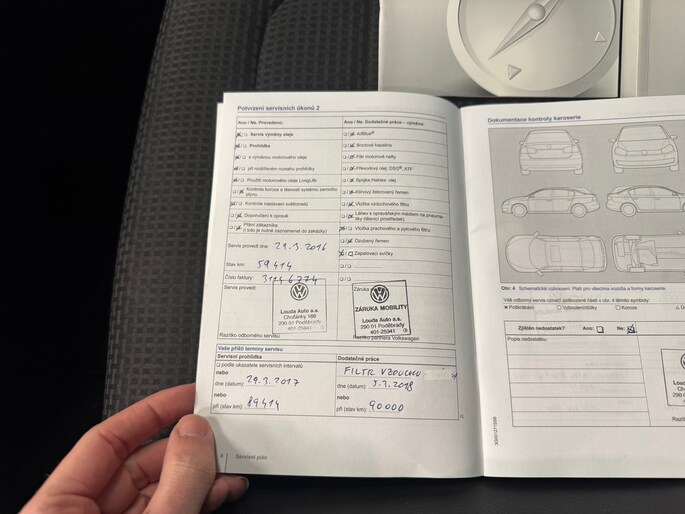 Potvrzení servisních úkonů 2
Ano / Ne. Provedeno:
Servis výměny oleje
Prohlídka
s výměnou motorového oleje
při rozšířeném rozsahu prohlídky
Použití motorového oleje LongLife
Kontrola koroze a těsnosti systému zemního plynu
Kontrola nastavení světlometů
Doporučení k opravě
Přání zákazníka
( toto je nutné zaznamenat do zakázky)
Servis proveden dne: 29.3.2016
Stav km: 59414
Číslo faktury: 31146774
Servis provedl:
Louda Auto a.s.
Choťánky 166
290 01 Poděbrady
401-25341
Razítko odborného servisu
Ano / Ne. Dodatečné práce – výměna:
AdBlue®
Brzdová kapalina
Filtr motorové nafty
Převodový olej, DSG®, ATF
Spojka Haldex: olej
Klínový žebrovaný řemen
Vložka vzduchového filtru
Láhev s opravářským médiem na pneumatiky (těsnicí prostředek)
Vložka prachového a pylového filtru
Ozubený řemen
Zapalovací svíčky
Záruka
ZÁRUKA MOBILITY
Louda Auto a.s.
290 01 Poděbrady
401-25341
Razítko partnera Volkswagen
Vaše příští termíny servisu
Servisní prohlídka
podle ukazatele servisních intervalů
nebo
dne (datum): 29.3.2017
nebo
při (stav km): 89414
Dodatečné práce
FILTR VZDUCHU
dne (datum): 5.3.2018
nebo
při (stav km): 90000
8 Servisní plán
Dokumentace kontroly karoserie
Obr. 4 Schematické zobrazení. Platí pro všechna vozidla a formy karoserie.
Váš odborný servis označí poškozené části v obr. 4 těmito symboly:
Poškrábání
Vyboulení/důlky
Koroze
Zjištěn nedostatek? Ano: Ne:
Popis nedostatku: